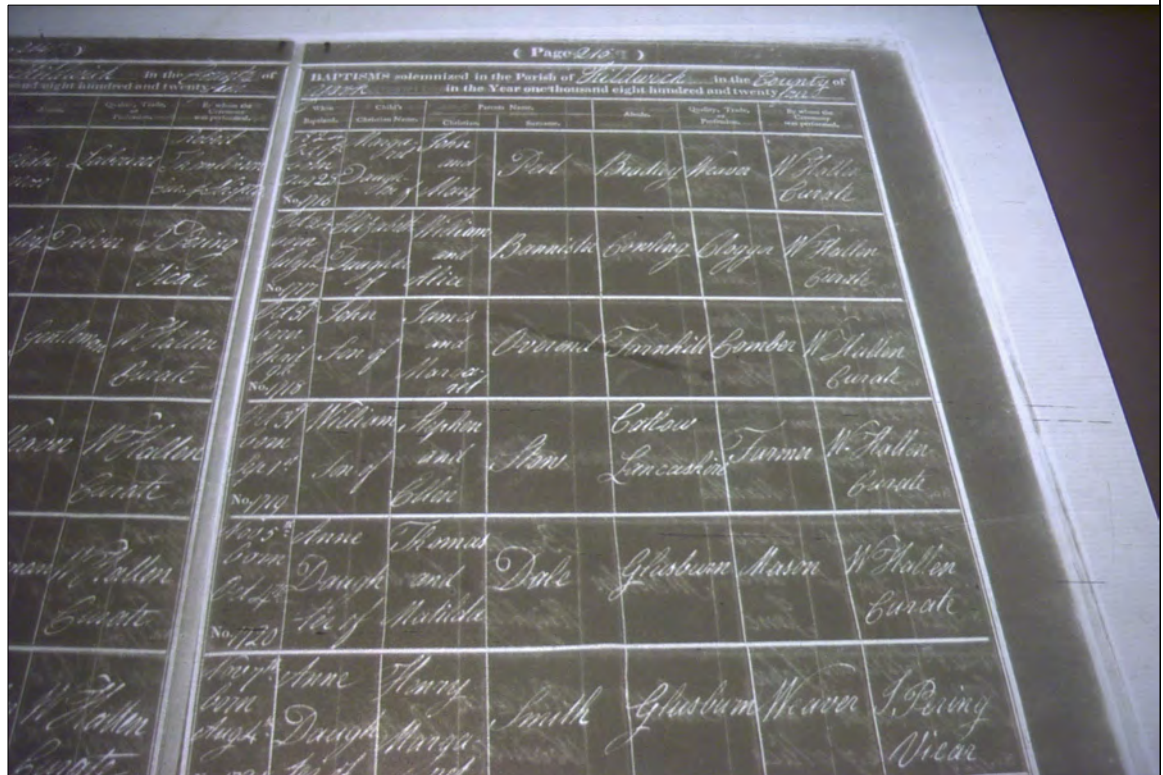 in the County of
and eight hundred and twenty
Quality, Trade, or Profession.
By whom the Ceremony was performed.
Labourer
Robert
Tomlinson
J Pering
Vicar
Gentleman
W Hallen
Curate
W Hallen
Curate
W Hallen
Curate
W Hallen
Curate
( Page 215 )
BAPTISMS solemnized in the Parish of Kildwick in the County of
York in the Year one thousand eight hundred and twenty
When Baptized.
Child's Christian Name.
Parents Name.
Christian.
Surname.
Abode.
Quality, Trade, or Profession.
By whom the Ceremony was performed.
born
No. 1716
Marga-
ret
Daugh-
ter of
John
and
Mary
Peel
Bradley
Weaver
W Hallen
Curate
born
No. 1717
Elizabeth
Daughter
of
William
and
Alice
Bannister
Cowling
Clogger
W Hallen
Curate
Oct 31st
born
April
9th
No. 1718
John
Son of
James
and
Marga-
ret
Overend
Farnhill
Comber
W Hallen
Curate
Oct 31st
born
Sep 1st
No. 1719
William
Son of
Stephen
and
Ellen
Catlow
Lancashire
Farmer
W Hallen
Curate
Nov 5th
born
Oct 4th
No. 1720
Anne
Daugh
ter of
Thomas
and
Matilda
Dale
Glasburn
Mason
W Hallen
Curate
Nov 7th
born
Aug 4th
Anne
Daugh
ter of
Henry
Marga-
ret
Smith
Glasburn
Weaver
J. Pering
Vicar